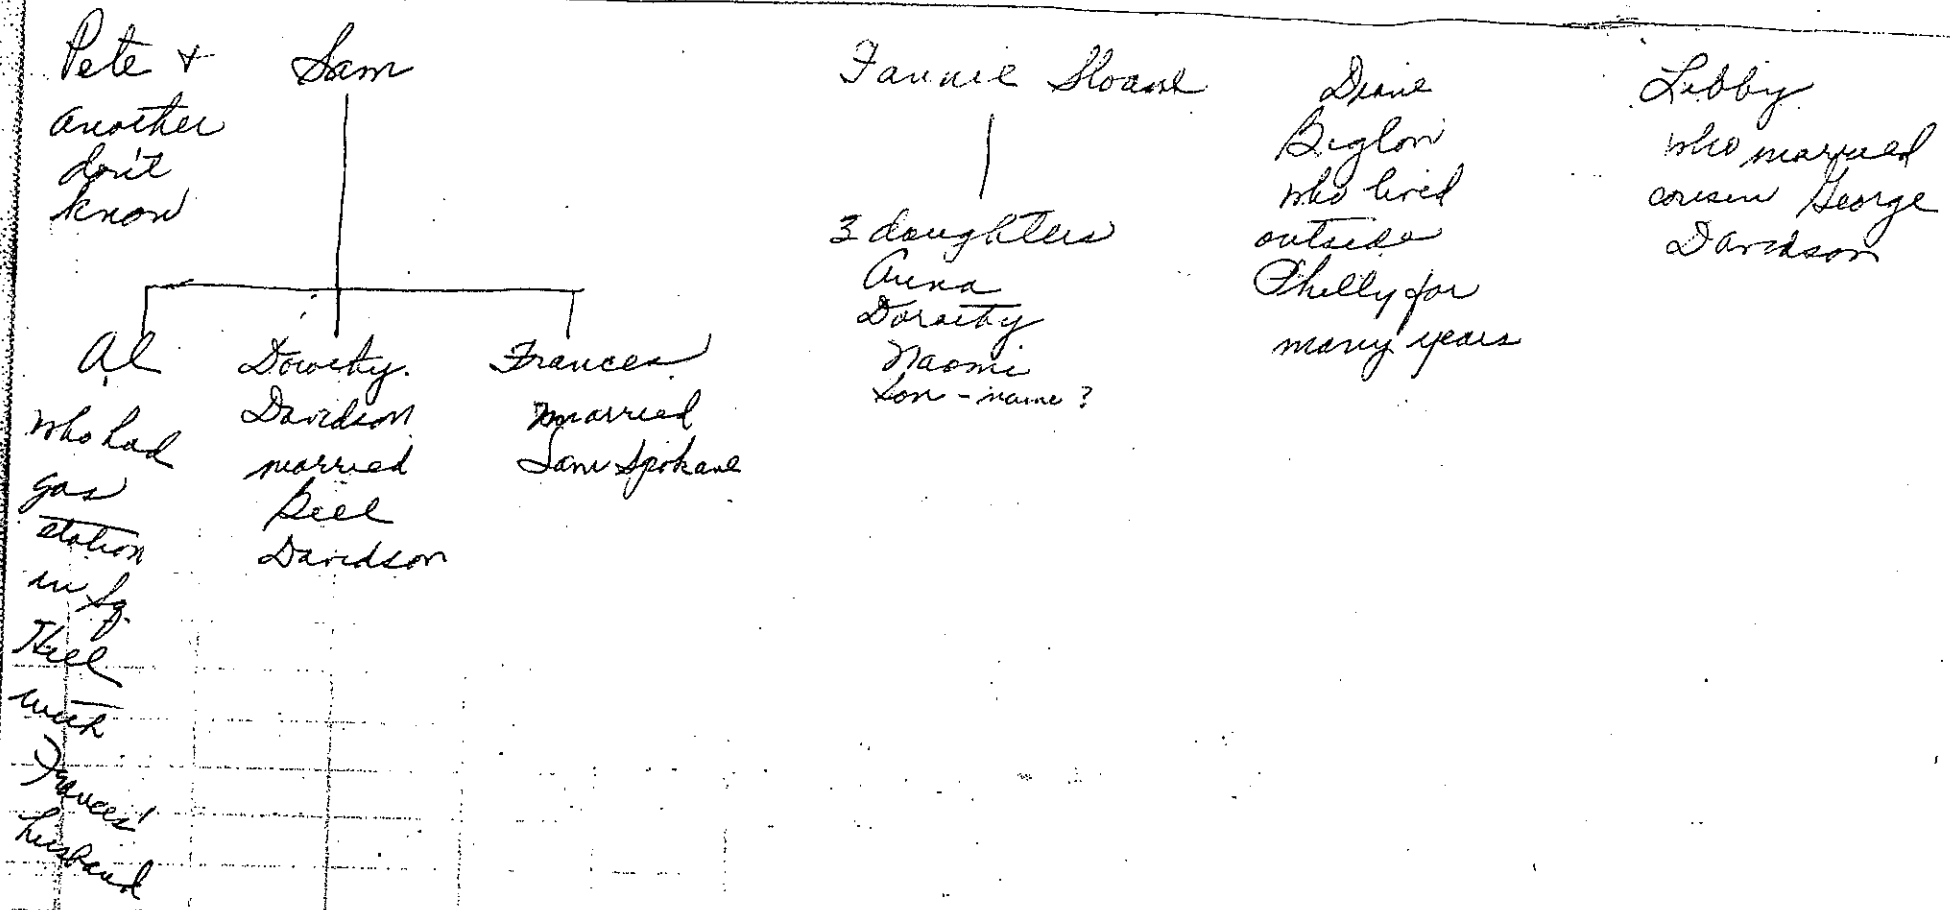 Pete +
another
don't
know
Sam
Al
who had
gas
station
in Sq.
Hill
with
Frances'
husband
Dorothy
Davidson
married
Bill
Davidson
Frances
married
Sam Spokane
Fannie Sloane
3 daughters
Anna
Dorothy
Naomi
Son - name?
Diane
Biglow
who lived
outside
Philly for
many years
Libby
who married
cousin George
Davidson